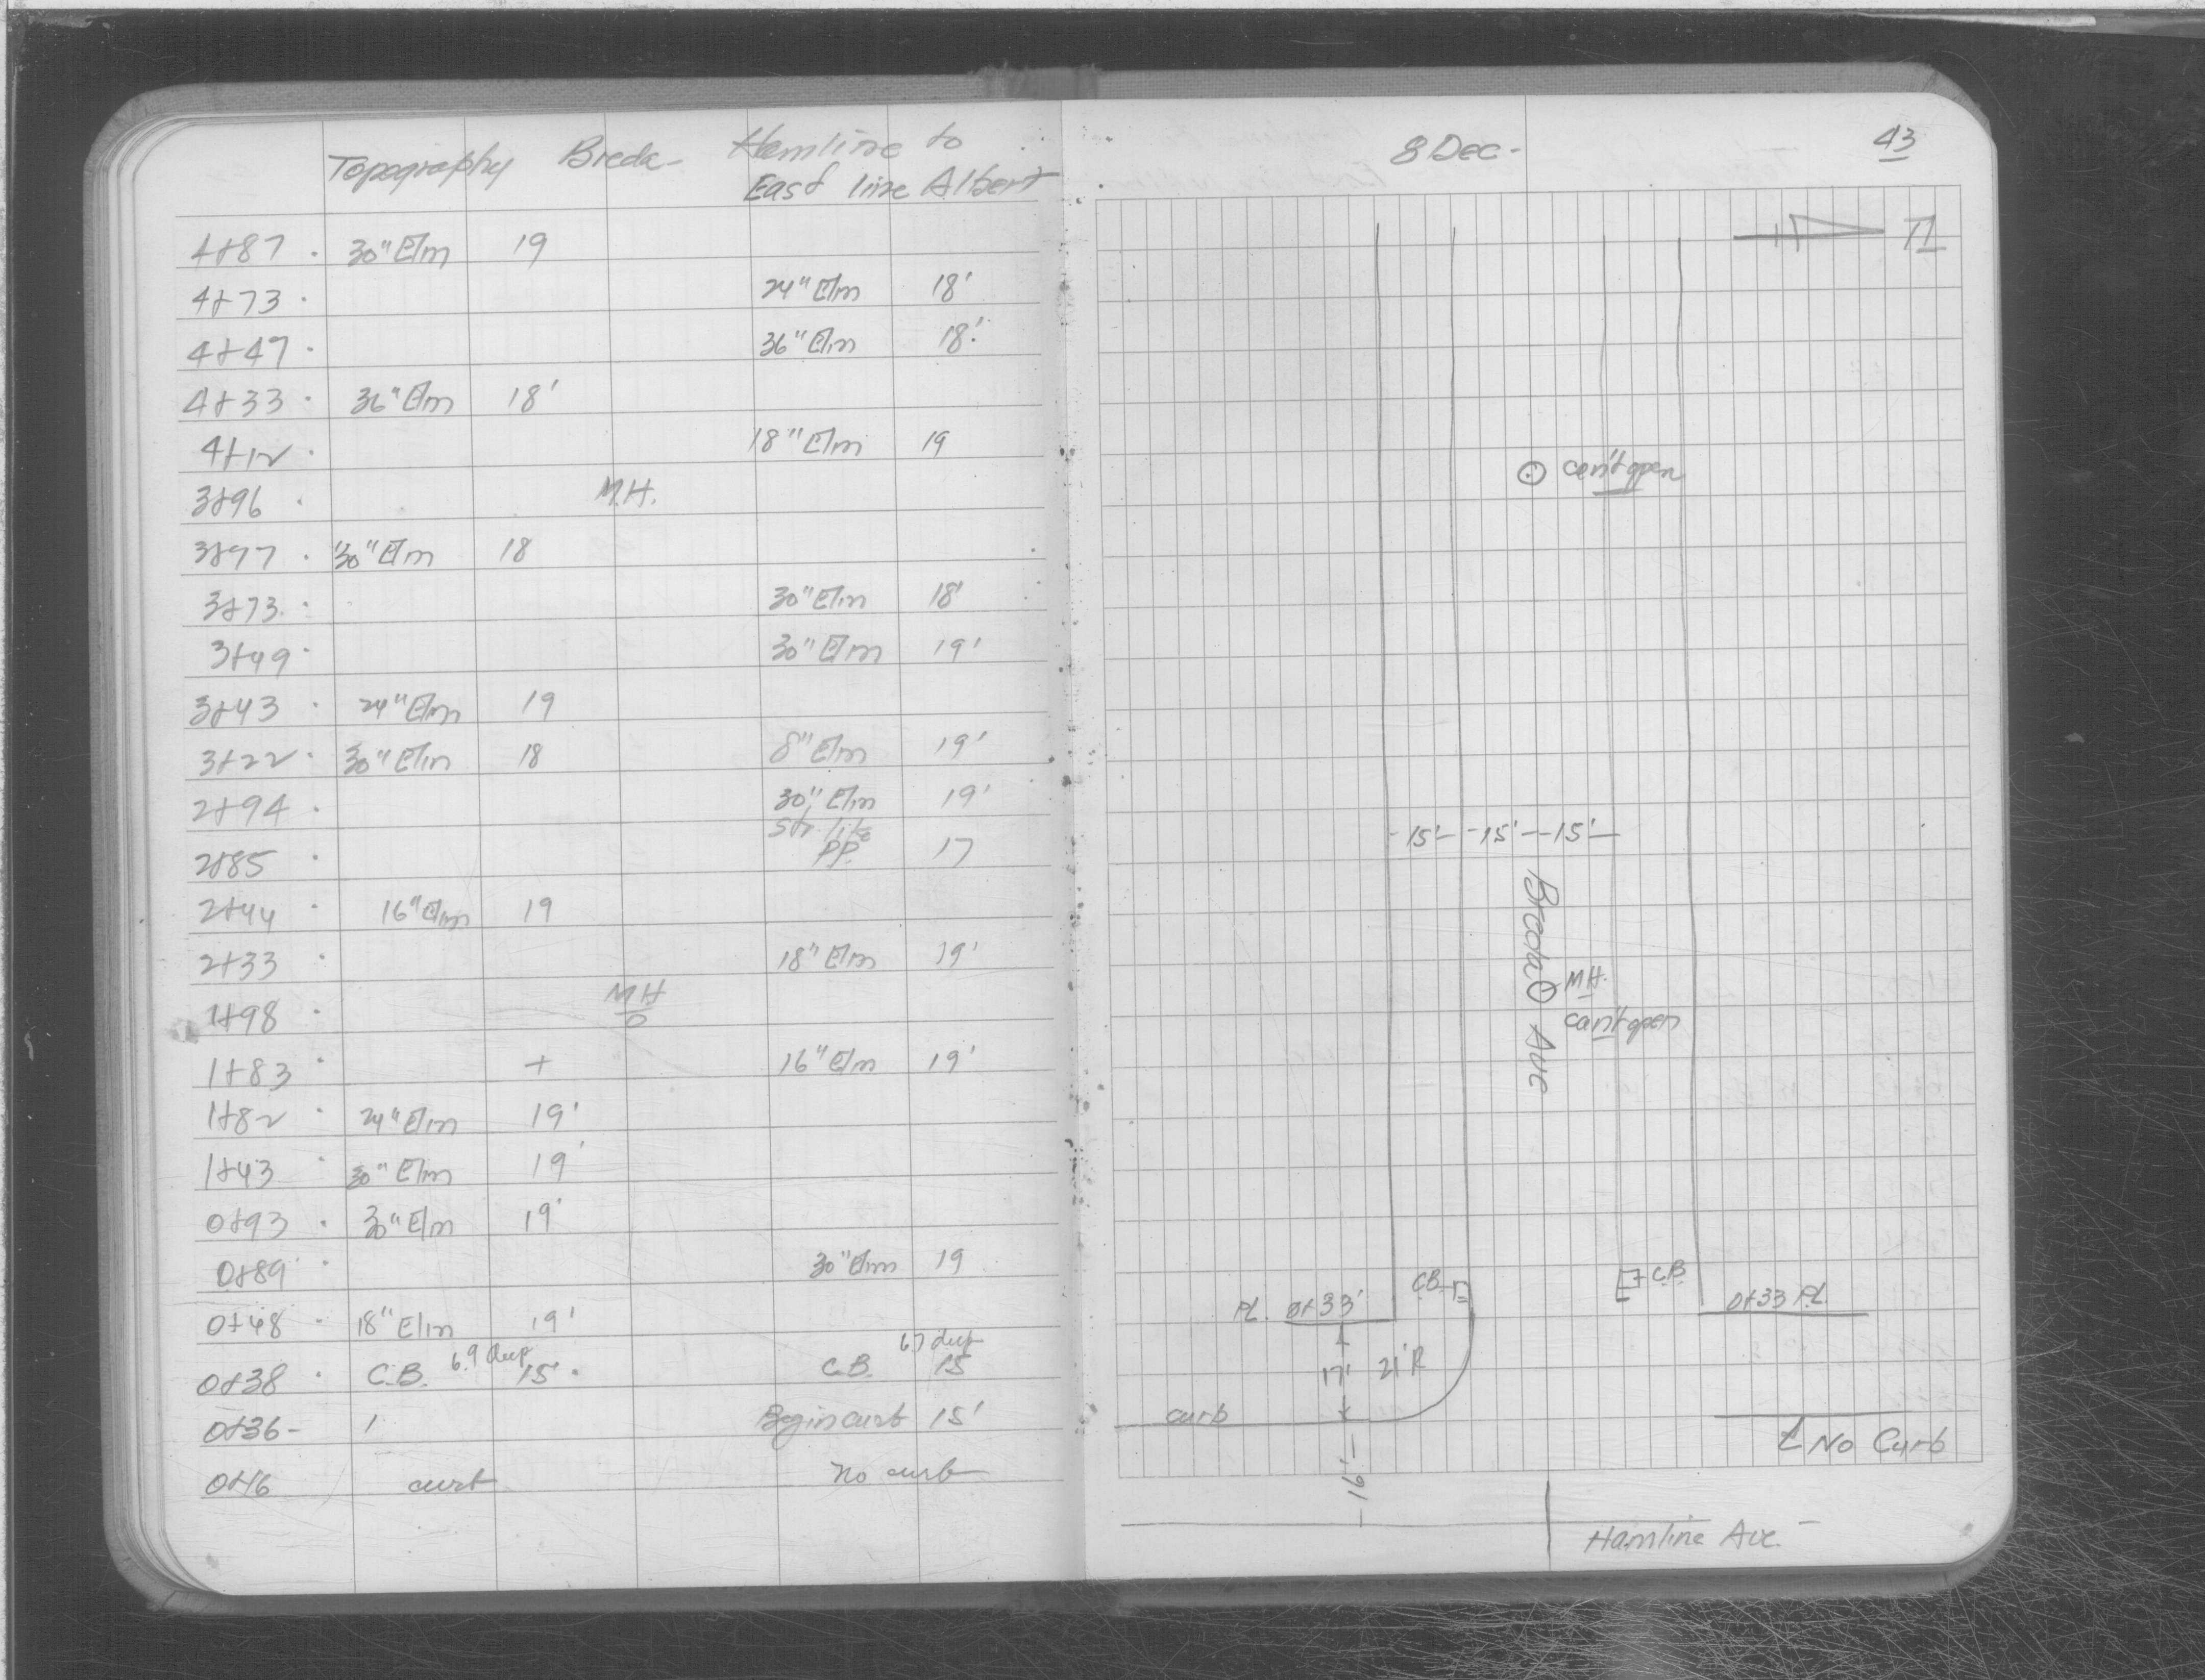 Topography Breda - Hamline to
East line Albert
4+87 . 30" Elm 19
4+73 . 24" Elm 18'
4+47 . 36" Elm 18'
4+33 . 36" Elm 18'
4+12 . 18" Elm 19
3+96 . M.H.
3+97 . 30" Elm 18
3+73 . 30" Elm 18'
3+49 . 30" Elm 19'
3+43 . 24" Elm 19
3+22 . 30" Elm 18 8" Elm 19'
2+94 . 30" Elm 19'
Str. lite
2+85 . P.P. 17
2+44 . 16" Elm 19
2+33 . 18" Elm 19'
1+98 . MH
O
1+83 . + 16" Elm 19'
1+82 . 24" Elm 19'
1+43 . 30" Elm 19'
0+93 . 30" Elm 19'
0+89 . 30" Elm 19
0+48 . 18" Elm 19'
6.9 deep 6.7 deep
0+38 . C.B. 15' . C.B. 15
0+36 - Begin curb 15'
0+16 curb No curb
8 Dec - 43
can't open
- 15' - - 15' - - 15' -
Breda Ave
M.H.
can't open
C.B. C.B.
PL. 0+33' 0+33 PL.
17' 21' R
curb
No Curb
- 16' -
Hamline Ave.